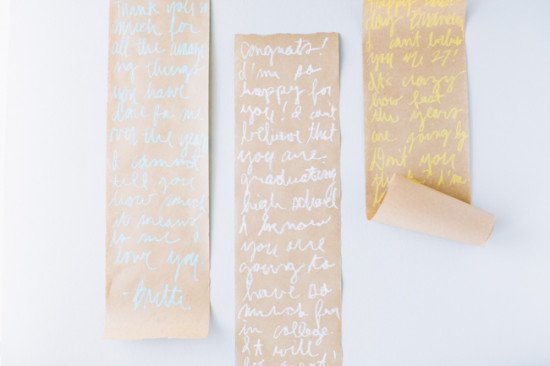 Thank you so
much for
all the amaz
ing things
you have
done to me
over the years
I cannot
tell you
how much
it means
to me I
love you
-Britte
Congrats!
I'm so
happy for
you! I can't
believe that
you are
graduating
high school
I know
you are
going to
have so
much fun
in college.
It will
be great!
happy birth
day
I can't believe
you are 27!
It's crazy
how fast
the years
are going by
Don't you
think I'm